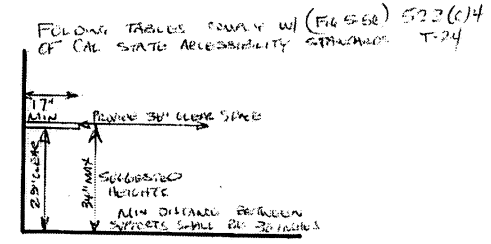 FOLDING TABLES COMPLY W/ (FIG 5-6e) 522(c)4
OF CAL STATE ACCESSIBILITY STANDARDS T-24
17"
MIN
PROVIDE 36" CLEAR SPACE
29" CLEAR
34" MAX
SUGGESTED
HEIGHTS
MIN DISTANCE BETWEEN
SUPPORTS SHALL BE 30 INCHES